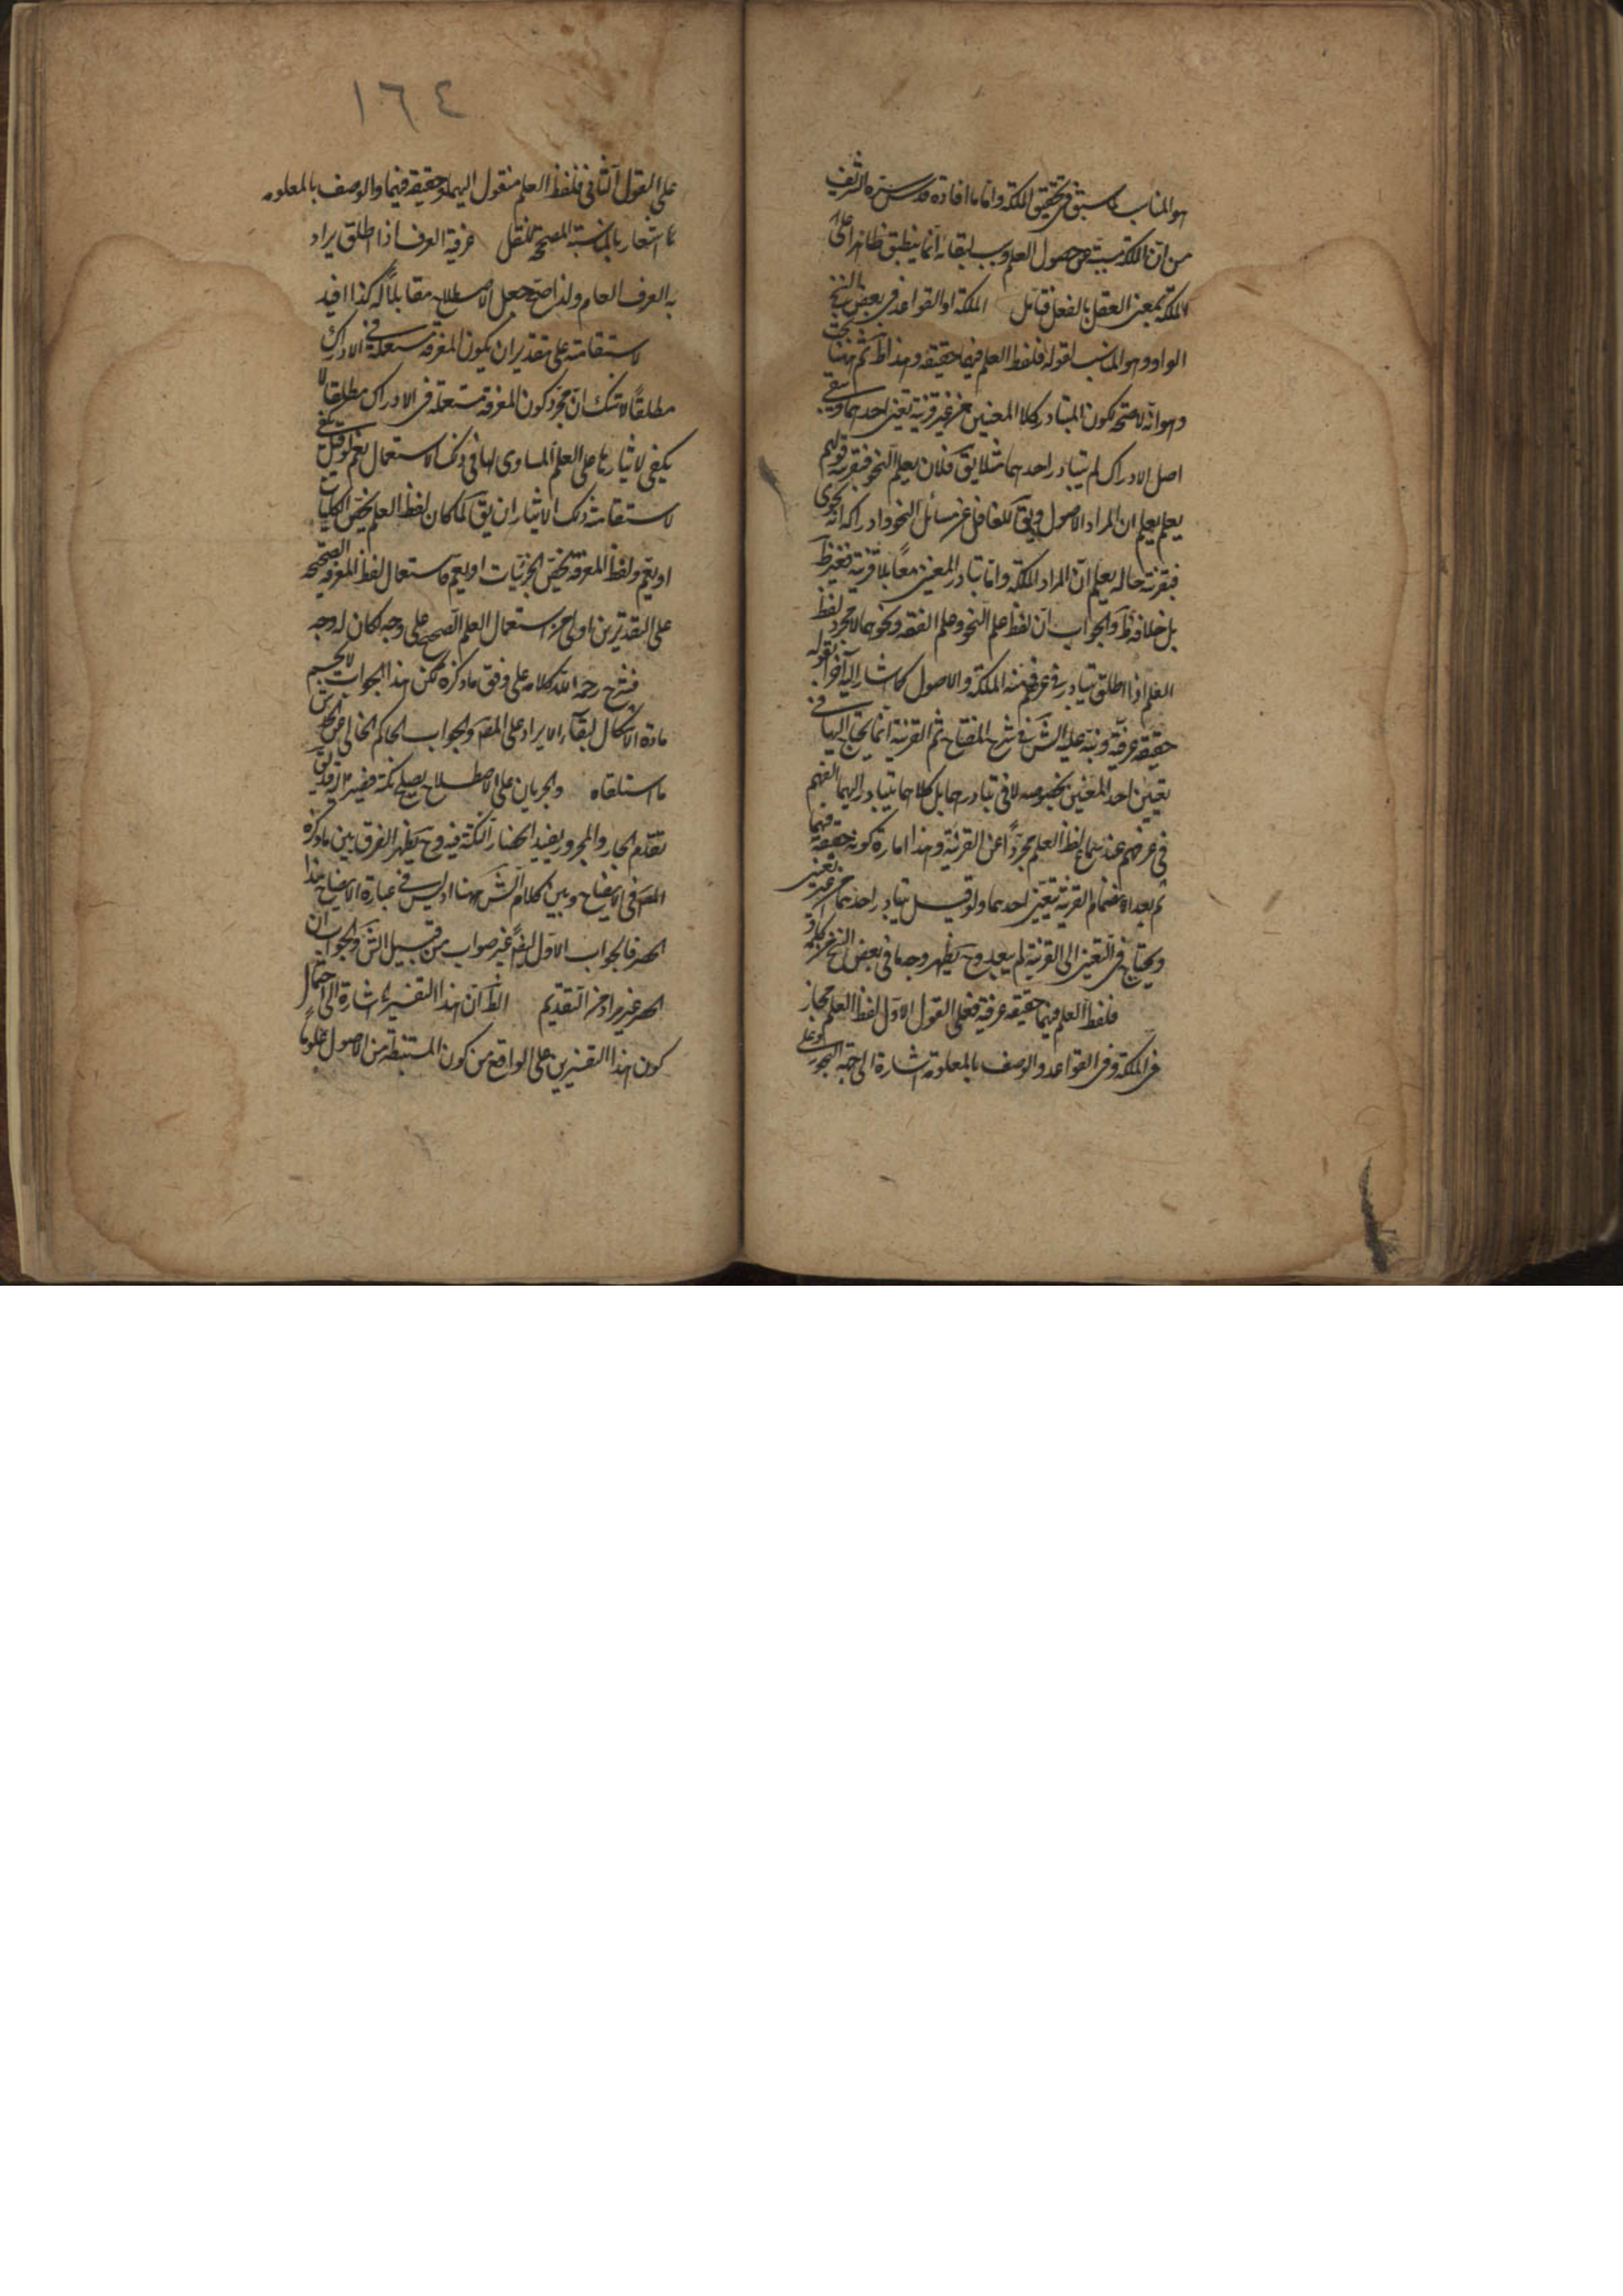 هو المناسب لما سبق فى تحقيق الملكة واما ما افاده قدس سره الشريف
من ان الملكة مسببة عن حصول العلم وسبب لبقائه انما ينطبق ظاهرا على
الملكة بمعنى العقل بالفعل فتأمل الملكة او القواعد فى بعض النسخ
الواو وهو المناسب لقوله فلفظ العلم فيهما حقيقة وهذا ثم ههنا بحث
وهو انه لا معنى لكون المتبادر كلا المعنيين من غير قرينة تعين احدهما وينفى
اصل الادراك لم يتبادر احدهما مثلا يق فلان يعلم النحو فبقرينة قولهم
يعلم يعلم ان المراد الاصول ويق للغافل عن مسائل النحو وادراكه انه نحوى
فبقرينة حاله يعلم ان المراد الملكة واما تبادر المعنيين معا بلا قرينة فغير ظ
بل خلافه ظ والجواب ان لفظ علم النحو وعلم الفقه ونحوهما لا مجرد لفظ
العلم اذا اطلق يتبادر فى عرفهم منه الملكة والاصول كما اشار اليه آخرا بقوله
حقيقة عرفية ونبه عليه الش فى شرح المفتاح ثم القرينة انما يحتاج اليها فى
تعيين احد المعنيين بخصوصه لا فى تبادرهما بل كلاهما يتبادر اليهما الفهم
فى عرفهم عند سماع لفظ العلم مجردا عن القرينة وهذا امارة كونه حقيقة فيهما
ثم بعد انضمام القرينة يتعين احدهما ولو قيل يتبادر احدهما من غير تعيين
ويحتاج فى التعيين الى القرينة لم يبعد وح يظهر وجه ما فى بعض النسخ من كلمة او
فلفظ العلم فيهما حقيقة عرفية فعلى القول الاول لفظ العلم مجاز
فى الملكة وفى القواعد والوصف بالمعلومة اشارة الى جهة التجوز وعلى
١٦٤
على القول الثانى فلفظ العلم منقول اليهما وحقيقة فيهما والوصف بالمعلومه
اشعار بالمناسبة المصححة للنقل عرفية العرف اذا اطلق يراد
به العرف العام ولذا صح جعل الاصطلاح مقابلا له كذا افيد
لاستقامته على تقدير ان يكون المعرفة مستعملة فى الادراك
مطلقا لا شك ان مجرد كون المعرفة مستعملة فى الادراك مطلقا لا
يكفى لايثارها على العلم المساوى لها فى ذلك الاستعمال نعم لو قيل يكفى
لاستقامة ذلك الايثار ان يق لما كان لفظ العلم يخص الكليات
او يعم ولفظ المعرفة يخص الجزئيات او يعم فاستعمال لفظ المعرفة الصحيحة
على التقديرين اولى من استعمال العلم الصحيح على وجه لكان له وجه
فشرح رحمه الله كلامه على وفق ما ذكره لكن هذا الجواب لا يحسم
مادة الاشكال لبقاء الايراد على المص والجواب الحاكم الخالى عن
ما ستلقاه والجريان على الاصطلاح يصلح نكتة
تقديم الجار والمجرور يفيد انحصار النكتة فيه وح يظهر الفرق بين ما ذكره
المص فى الايضاح وبين كلام الش ههنا اذ ليس فى عبارة الايضاح هذا
الحصر فالجواب الاول ايضا غير صواب من قبيل الش والجواب ان
الحصر غير مراد من التقديم الظ ان هذا التفسير اشارة الى احتمال
كون هذا التفسيرين على الواقع من كون المستنبطة من الاصول علوما